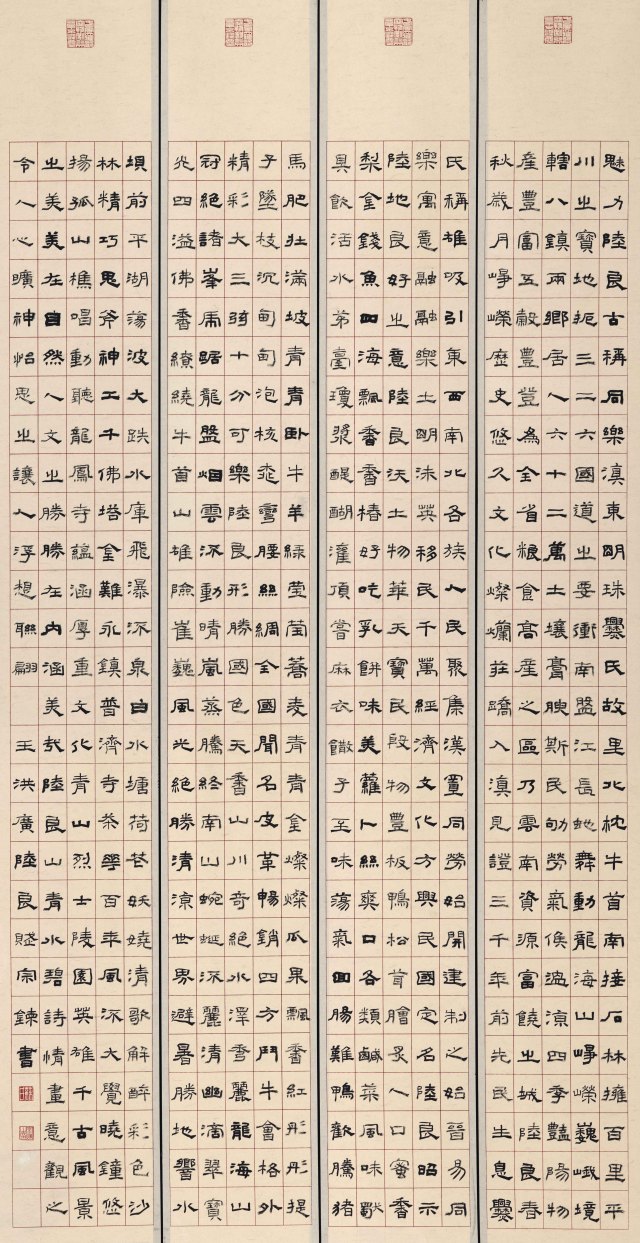 魅力陸良古稱同樂滇東明珠爨氏故里北枕牛首南接石林擁百里平
川之寶地扼三二六國道之要衝南盤江長虵舞動龍海山崢嶸巍峨境
轄八鎮兩鄉居人六十二萬土壤膏腴斯民勤勞氣候溫涼四季豔陽物
產豐富五穀豐登為全省粮食高產之區乃雲南資源富饒之城陸良春
秋歲月崢嶸歷史悠久文化燦爛莊蹻入滇見證三千年前先民生息爨
氏稱雄吸引東西南北各族人民聚集漢置同勞始開建制之始晉易同
樂寓意融融樂土明沐英移民千萬經濟文化方興民國定名陸良昭示
陸地良好之意陸良沃土物華天寶民段物豐板鴨松茸膾炙人口蜜香
梨金錢魚四海飄香香椿好吃乳餅味美蘿卜絲爽口各類鹹菜風味獨
具飲活水茅臺瓊漿醍醐灌頂嘗麻衣饊子至味蕩氣回腸雞鴨歡騰豬
馬肥壯滿坡青青卧牛羊綠瑩瑩蕎麦青青金燦燦瓜果飄香紅彤彤提
子墜枝沉甸甸泡核桃彎腰絲綢全國聞名皮革暢銷四方鬥牛會格外
精彩大三弦十分可樂陸良形勝國色天香山川奇絕水澤秀麗龍海山
冠絕諸峯虎踞龍盤烟雲流動晴嵐蒸騰終南山蜿蜒流麗清幽滴翠寶
光四溢佛香繚繞牛首山雄險崔巍風光絕勝清涼世界避暑勝地響水
壩前平湖蕩波大跌水庫飛瀑流泉白水塘荷花妖嬈清歌解醉彩色沙
林精巧鬼斧神工千佛塔金雞永鎮普濟寺茶花百年風流大覺曉鐘悠
揚孤山樵唱動聽龍鳳寺蘊涵厚重文化青山烈士陵園英雄千古風景
之美美在自然人文之勝勝在內涵美哉陸良山青水碧詩情畫意觀之
令人心曠神怡思之讓人浮想聯翩 王洪廣陸良賦宗錬書